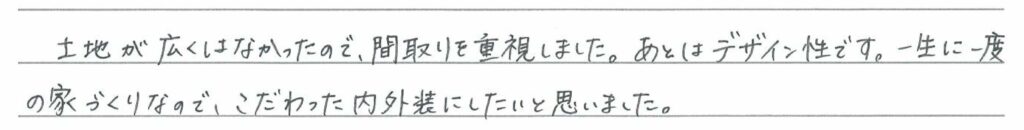 土地が広くはなかったので、間取りを重視しました。あとはデザイン性です。一生に一度
の家づくりなので、こだわった内外装にしたいと思いました。